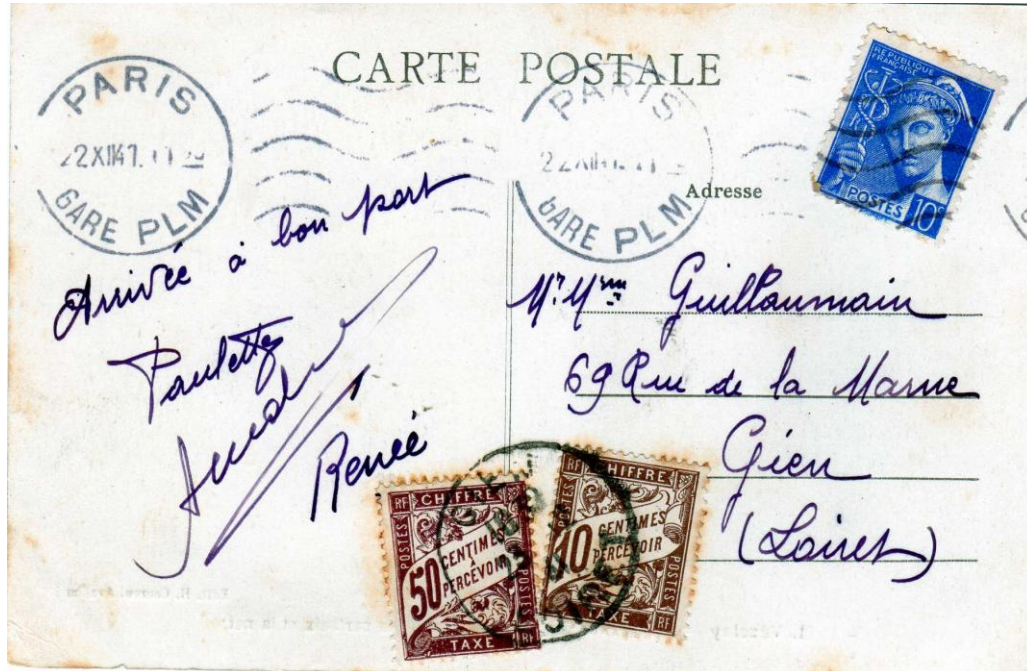 CARTE POSTALE
PARIS
22XII41
GARE PLM
PARIS
GARE PLM
REPUBLIQUE
FRANÇAISE
POSTES 10c
Adresse
Arrivée à bon port
Paulette
Renée
Mr Mme Guillaumain
69 Rue de la Marne
Gien
(Loiret)
RF CHIFFRE
POSTES
50 CENTIMES
À
PERCEVOIR
POSTES
TAXE RF
RF CHIFFRE
POSTES
10 CENTIMES
À
PERCEVOIR
POSTES
TAXE RF